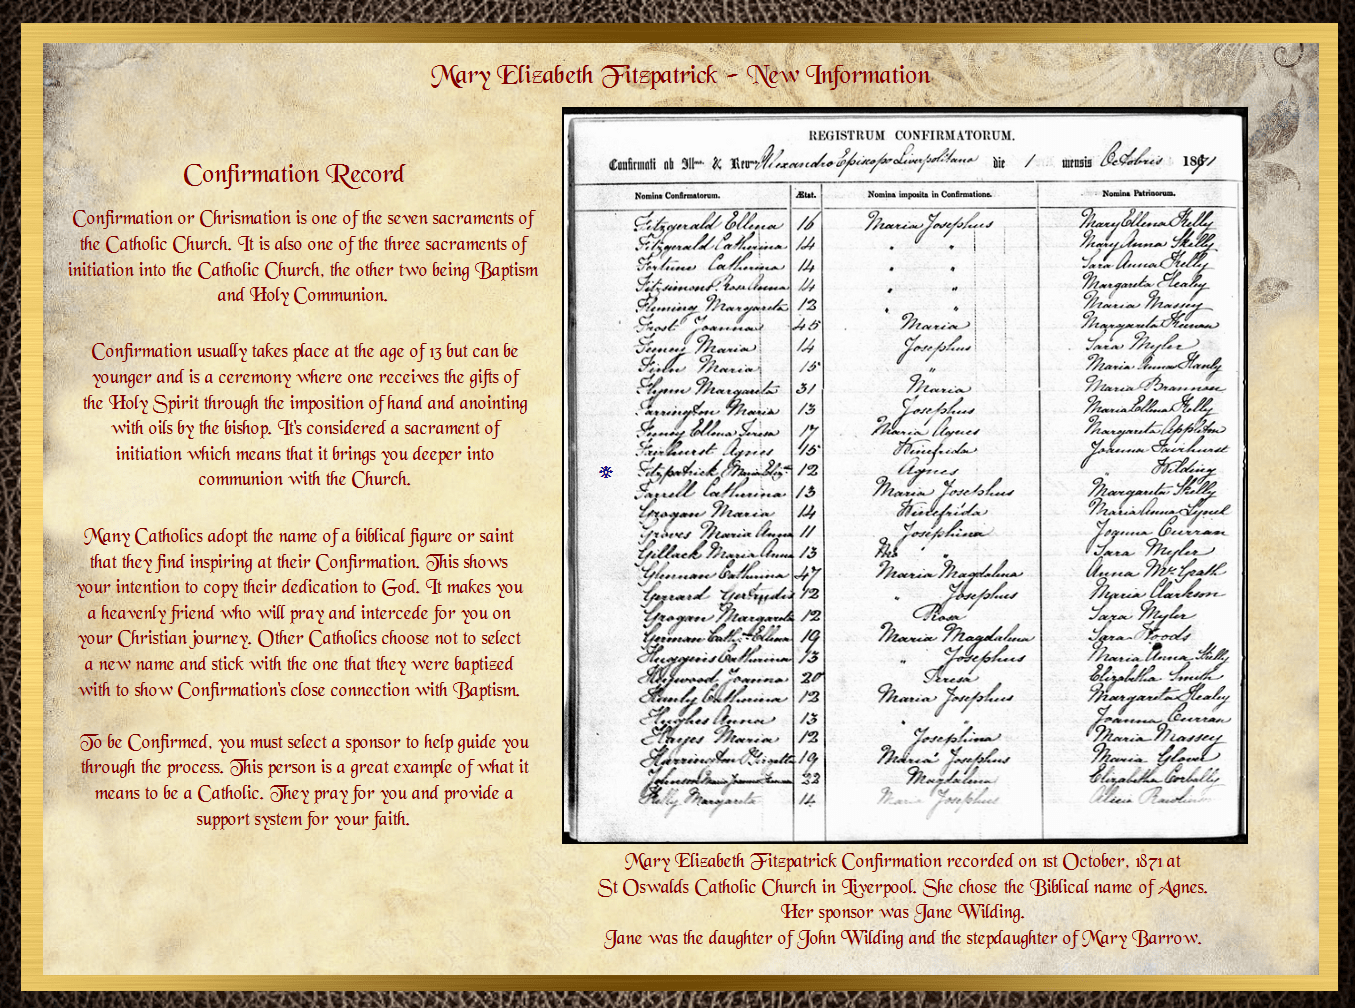 Mary Elizabeth Fitzpatrick - New Information
Confirmation Record
Confirmation or Chrismation is one of the seven sacraments of
the Catholic Church. It is also one of the three sacraments of
initiation into the Catholic Church, the other two being Baptism
and Holy Communion.
Confirmation usually takes place at the age of 13 but can be
younger and is a ceremony where one receives the gifts of
the Holy Spirit through the imposition of hand and anointing
with oils by the bishop. It's considered a sacrament of
initiation which means that it brings you deeper into
communion with the Church.
Many Catholics adopt the name of a biblical figure or saint
that they find inspiring at their Confirmation. This shows
your intention to copy their dedication to God. It makes you
a heavenly friend who will pray and intercede for you on
your Christian journey. Other Catholics choose not to select
a new name and stick with the one that they were baptized
with to show Confirmation's close connection with Baptism.
To be Confirmed, you must select a sponsor to help guide you
through the process. This person is a great example of what it
means to be a Catholic. They pray for you and provide a
support system for your faith.
REGISTRUM CONFIRMATORUM.
Confirmati ab Ill & Rev Alexandro Episcopo Liverpolitano die 1 mensis Octobris 1871
Nomina Confirmatorum. Ætat. Nomina imposita in Confirmatione. Nomina Patrinorum.
Fitzgerald Ellena 16 Maria Josephus Mary Ellena Kelly
Fitzgerald Catherina 14 " " Mary Anna Skelly
Fortune Catherina 14 " " Sara Anna Kelly
Fitzsimons Rose Anna 14 " " Margareta Healey
Fleming Margareta 13 " " Maria Massey
Frost Joanna 45 Maria Margareta
Finney Maria 14 Josephus Sara Myler
Finn Maria 15 " Maria Anna Hanly
Flynn Margareta 31 Maria Maria Brannan
Farrington Maria 13 Josephus Maria Ellena Kelly
Finney Ellena Teresa 17 Maria Agnes Margareta Appleton
Fairhurst Agnes 15 Winefrida Joanna Fairhurst
Fitzpatrick Maria Eliz 12 Agnes " Wilding
Farrell Catherina 13 Maria Josephus Margareta Skelly
Grogan Maria 14 Winefrida Maria Anna
Groves Maria Anna 11 Josephina Joanna Curran
Gillack Maria Anna 13 " Sara Myler
Glennan Catherina 47 Maria Magdalena Anna McGrath
Gerrard Gertrudis 12 " Josephus Maria Clarkson
Grogan Margareta 12 Rosa Sara Myler
German Cath Ellena 19 Maria Magdalena Sara Woods
Huggins Catherina 13 " Josephus Maria Anna Skelly
Heywood Joanna 20 Teresa Elizabetha Smith
Hanly Catherina 12 Maria Josephus Margareta Healey
Hughes Anna 13 " " Joanna Curran
Hayes Maria 12 Josephina Maria Massey
Harrington Brigetta 19 Maria Josephus Maria Glover
Johnson Maria Joanna 22 Magdalena Elizabetha Corbally
Kelly Margareta 14 Maria Josephus Alicia
Mary Elizabeth Fitzpatrick Confirmation recorded on 1st October, 1871 at
St Oswalds Catholic Church in Liverpool. She chose the Biblical name of Agnes.
Her sponsor was Jane Wilding.
Jane was the daughter of John Wilding and the stepdaughter of Mary Barrow.